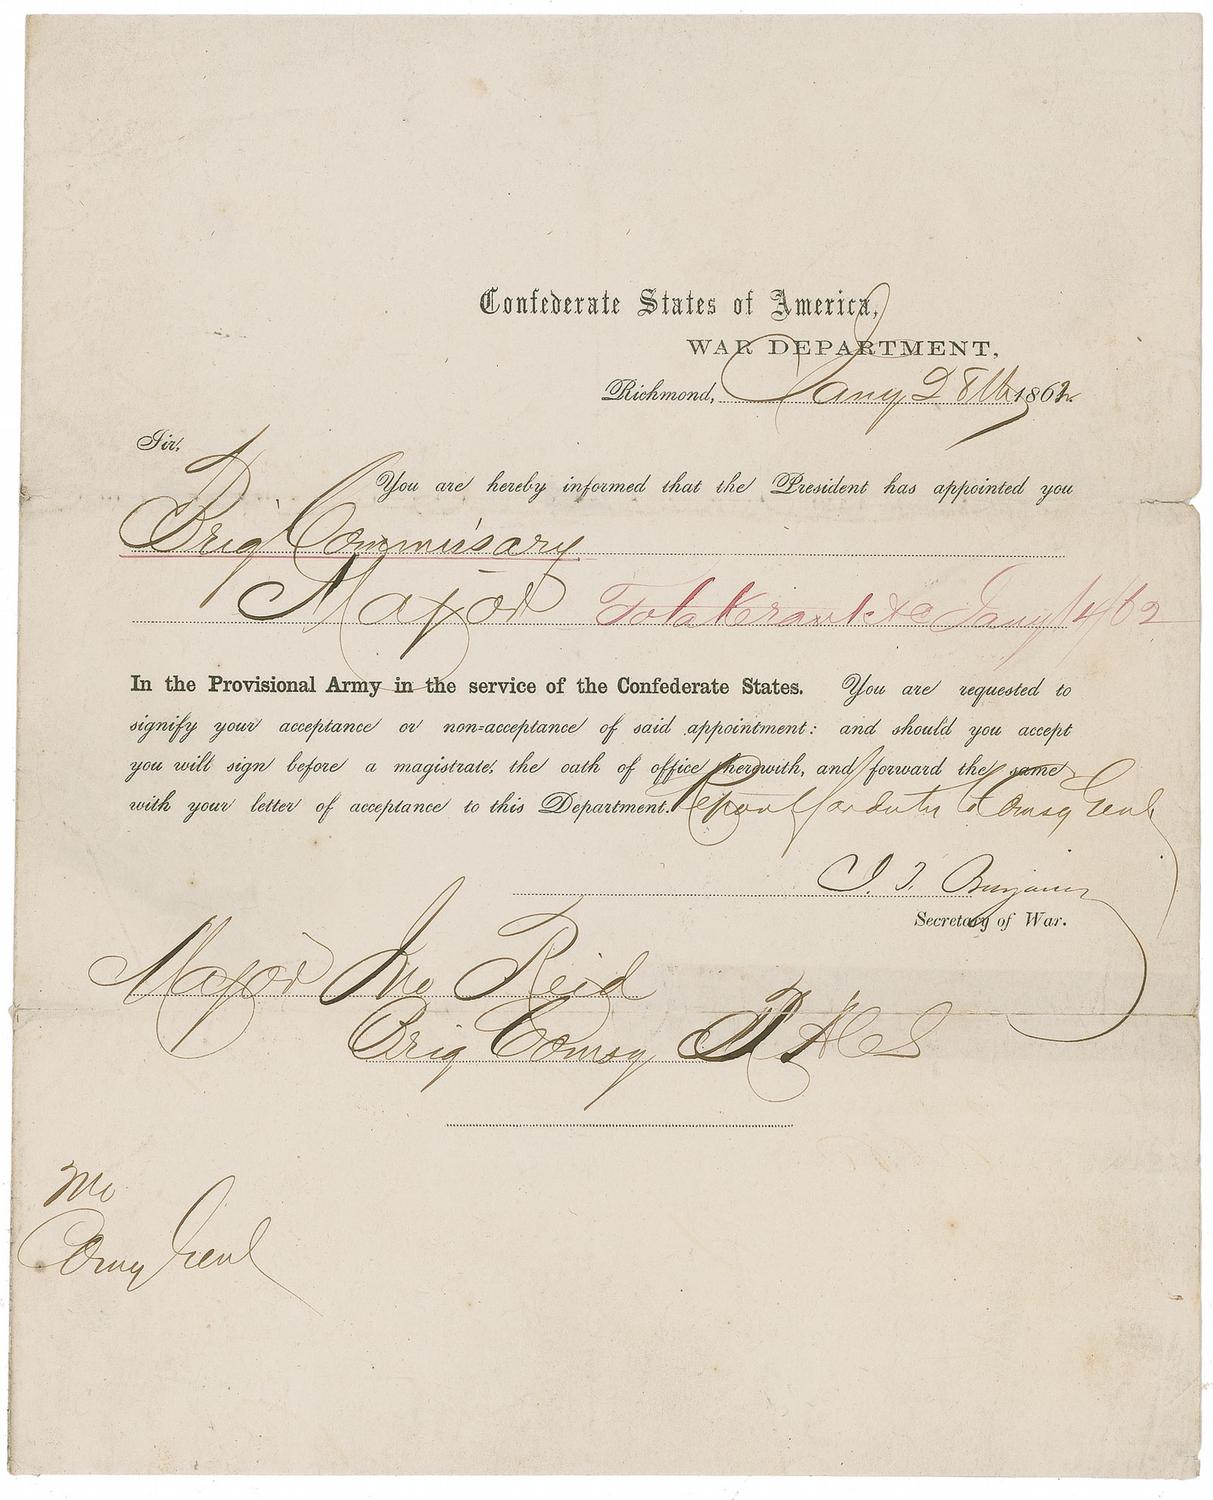 Confederate States of America,
WAR DEPARTMENT,
Richmond, Jany 28th 1862.
Sir,
You are hereby informed that the President has appointed you
Brig Commissary
Major To take rank &c Jany 14/62
In the Provisional Army in the service of the Confederate States. You are requested to
signify your acceptance or non=acceptance of said appointment: and should you accept
you will sign before a magistrate, the oath of office herewith, and forward the same
with your letter of acceptance to this Department. Report for duty to Comsy Genl
J. P. Benjamin
Secretary of War.
Major Jno Reid
Brig Comsy P A C S
Genl